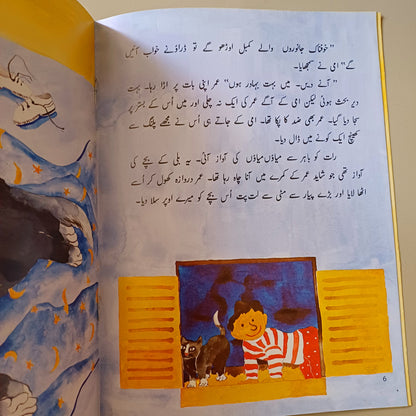 "خوفناک جانوروں والے کمبل اوڑھو گے تو ڈراؤنے خواب آئیں
گے" امی نے سمجھایا۔
"آنے دیں۔ میں بہت بہادر ہوں" عمر اپنی بات پر اڑا رہا۔ بہت
دیر بحث ہوئی لیکن امی کے آگے عمر کی ایک نہ چلی اور میں اُس کے بستر پر
سجا دیا گیا۔ عمر بھی ضد کا پکا تھا۔ امی کے جاتے ہی اُس نے مجھے پلنگ سے
کھینچ ایک کونے میں ڈال دیا۔
رات کو باہر سے میاؤں میاؤں کی آواز آئی۔ یہ بلی کے بچے کی
آواز تھی جو شاید عمر کے کمرے میں آنا چاہ رہا تھا۔ عمر دروازہ کھول کر اُسے
اٹھا لایا اور بڑے پیار سے مٹی سے لت پت اُس بچے کو میرے اوپر سلا دیا۔
6